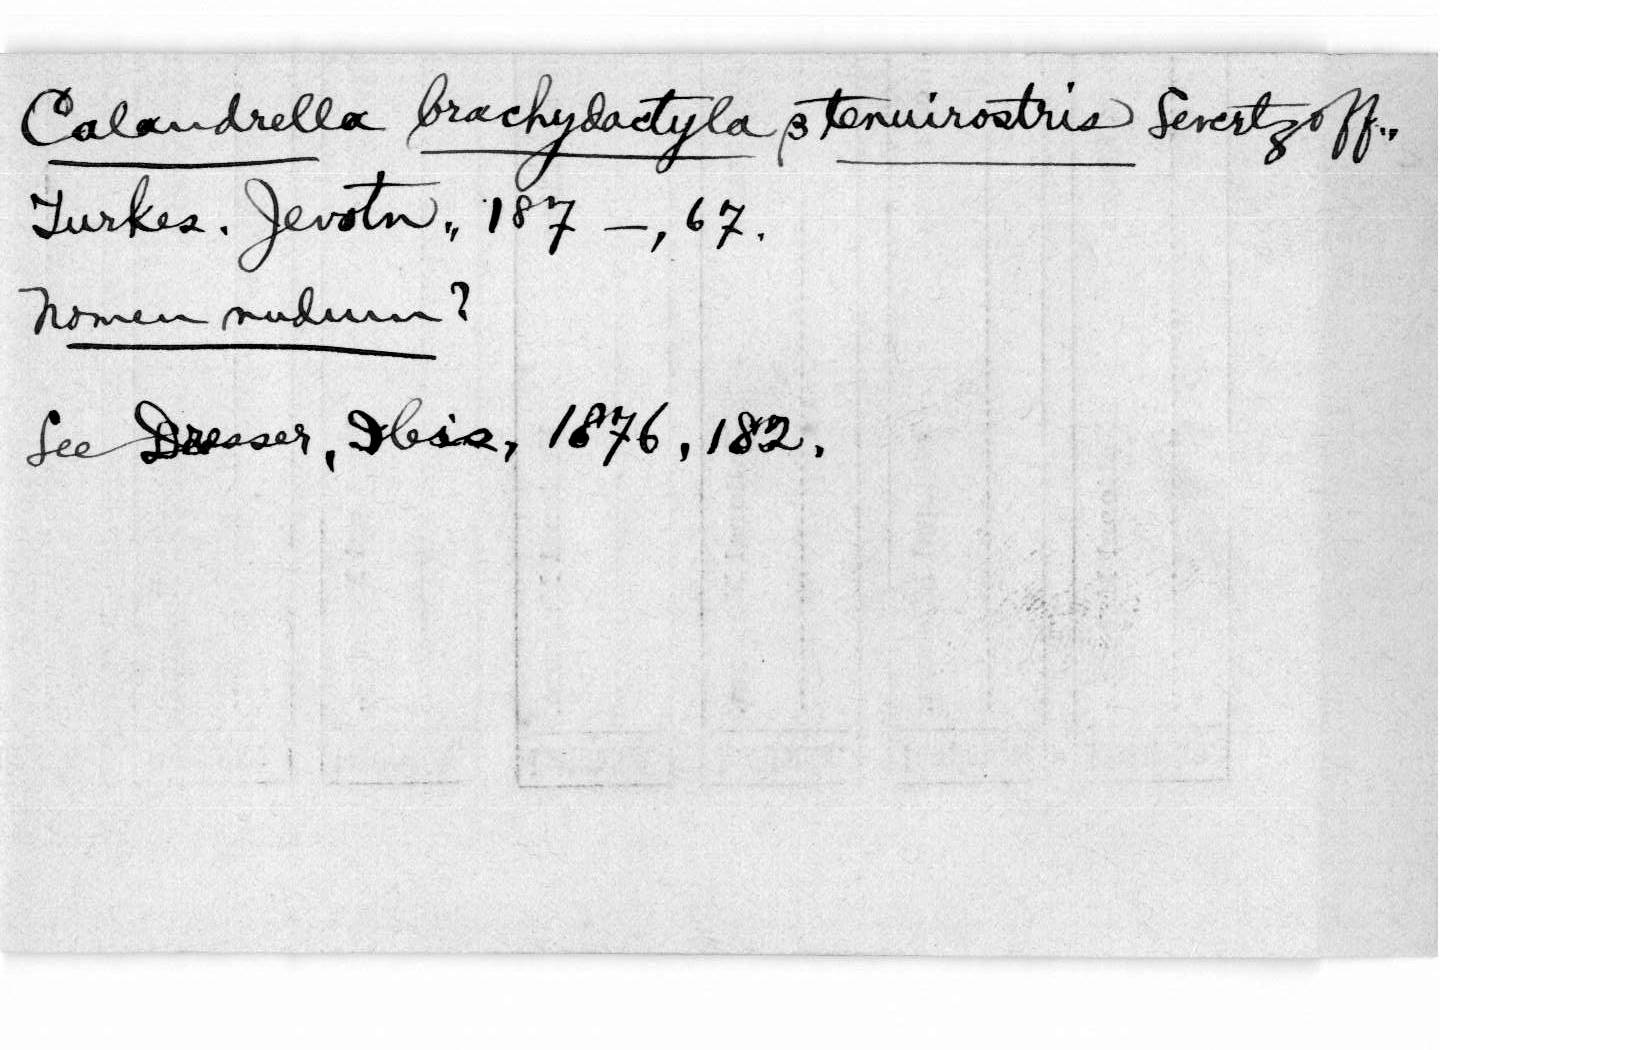 Calandrella brachydactyla β tenuirostris Severtzoff.,
Turkes. Jevotn., 187 –, 67.
Nomen nudum?
See Dresser, Ibis, 1876, 182.